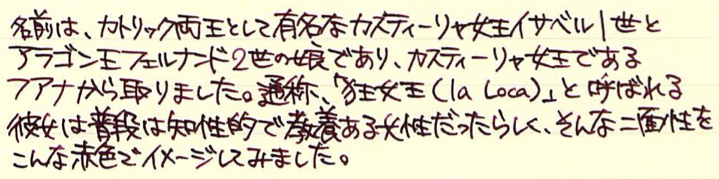 名前は、カトリック両王として有名なカスティーリャ女王イサベル1世と
アラゴン王フェルナンド2世の娘であり、カスティーリャ女王である
フアナから取りました。通称、「狂女王(la Loca)」と呼ばれる
彼女は普段は知性的で教養ある女性だったらしく、そんな二面性を
こんな赤色でイメージしてみました。